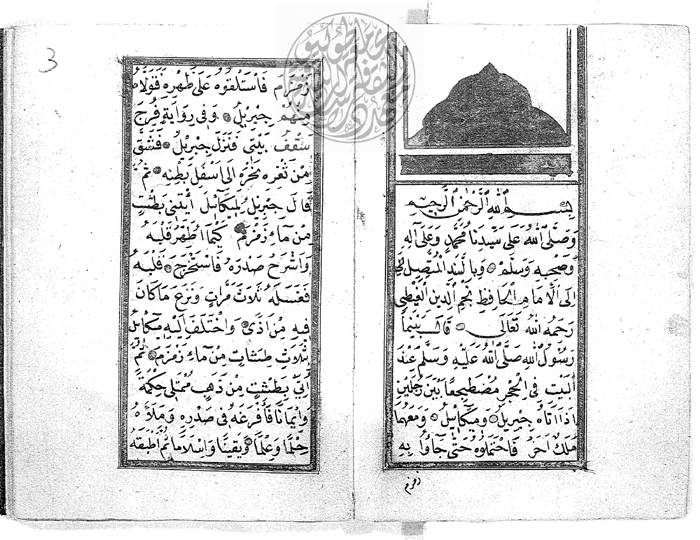 بسم الله الرحمن الرحيم
وَصَلَّى اللهُ عَلَى سَيِّدِنَا مُحَمَّدٍ وَعَلَى آلِهِ
وَصَحْبِهِ وَسَلَّمْ وَبِالسَّنَدِ الْمُتَّصِلِ
اِلَى الْاِمَامِ الْحَافِظِ نَجْمِ الدِّينِ الْغَيْطِي
رَحِمَهُ اللهُ تَعَالَى قَالَ بَيْنَمَا
رَسُولُ اللهِ صَلَّى اللهُ عَلَيْهِ وَسَلَّمْ عِنْدَ
الْبَيْتِ فِي الْحِجْرِ مُضْطَجِعًا بَيْنَ رَجُلَيْنِ
اِذْ اَتَاهُ جِبْرِيلُ وَمِكَائِيلُ وَمَعَهُمَا
مَلَكٌ اٰخَرُ فَاحْتَمَلُوهُ حَتَّى جَاؤُا بِهِ
زمزم
3
زَمْزَمَ فَاسْتَلْقَوْهُ عَلَى ظَهْرِهِ فَتَوَلَّاهُ
مِنْهُمْ جِبْرِيلُ وَفِي رِوَايَةٍ فُرِجَ
سَقْفُ بَيْتِي فَنَزَلَ جِبْرِيلُ فَشَقَّ
مِنْ ثُغْرَةِ نَحْرِهِ اِلَى اَسْفَلِ بَطْنِهِ ثُمَّ
قَالَ جِبْرِيلُ لِمِيكَائِيلَ اُيْتِنِي بِطَشْتٍ
مِنْ مَاءِ زَمْزَمَ كَيْمَا اُطَهِّرَ قَلْبَهُ
وَاَشْرَحَ صَدْرَهُ فَاسْتَخْرَجَ قَلْبَهُ
فَغَسَلَهُ ثَلَاثَ مَرَّاتٍ وَنَزَعَ مَا كَانَ
فِيهِ مِنْ اَذًى وَاخْتَلَفَ اِلَيْهِ مِيكَائِيلُ
بِثَلَاثِ طِشَتَاتٍ مِنْ مَاءِ زَمْزَمَ ثُمَّ
اُتِيَ بِطَشْتٍ مِنْ ذَهَبٍ مُمْتَلِي حِكْمَةً
وَاِيمَانًا فَاَفْرَغَهُ فِي صَدْرِهِ وَمَلَأَهُ
حِلْمًا وَعِلْمًا وَيَقِينًا وَاِسْلَامًا ثُمَّ اَطْبَقَهُ